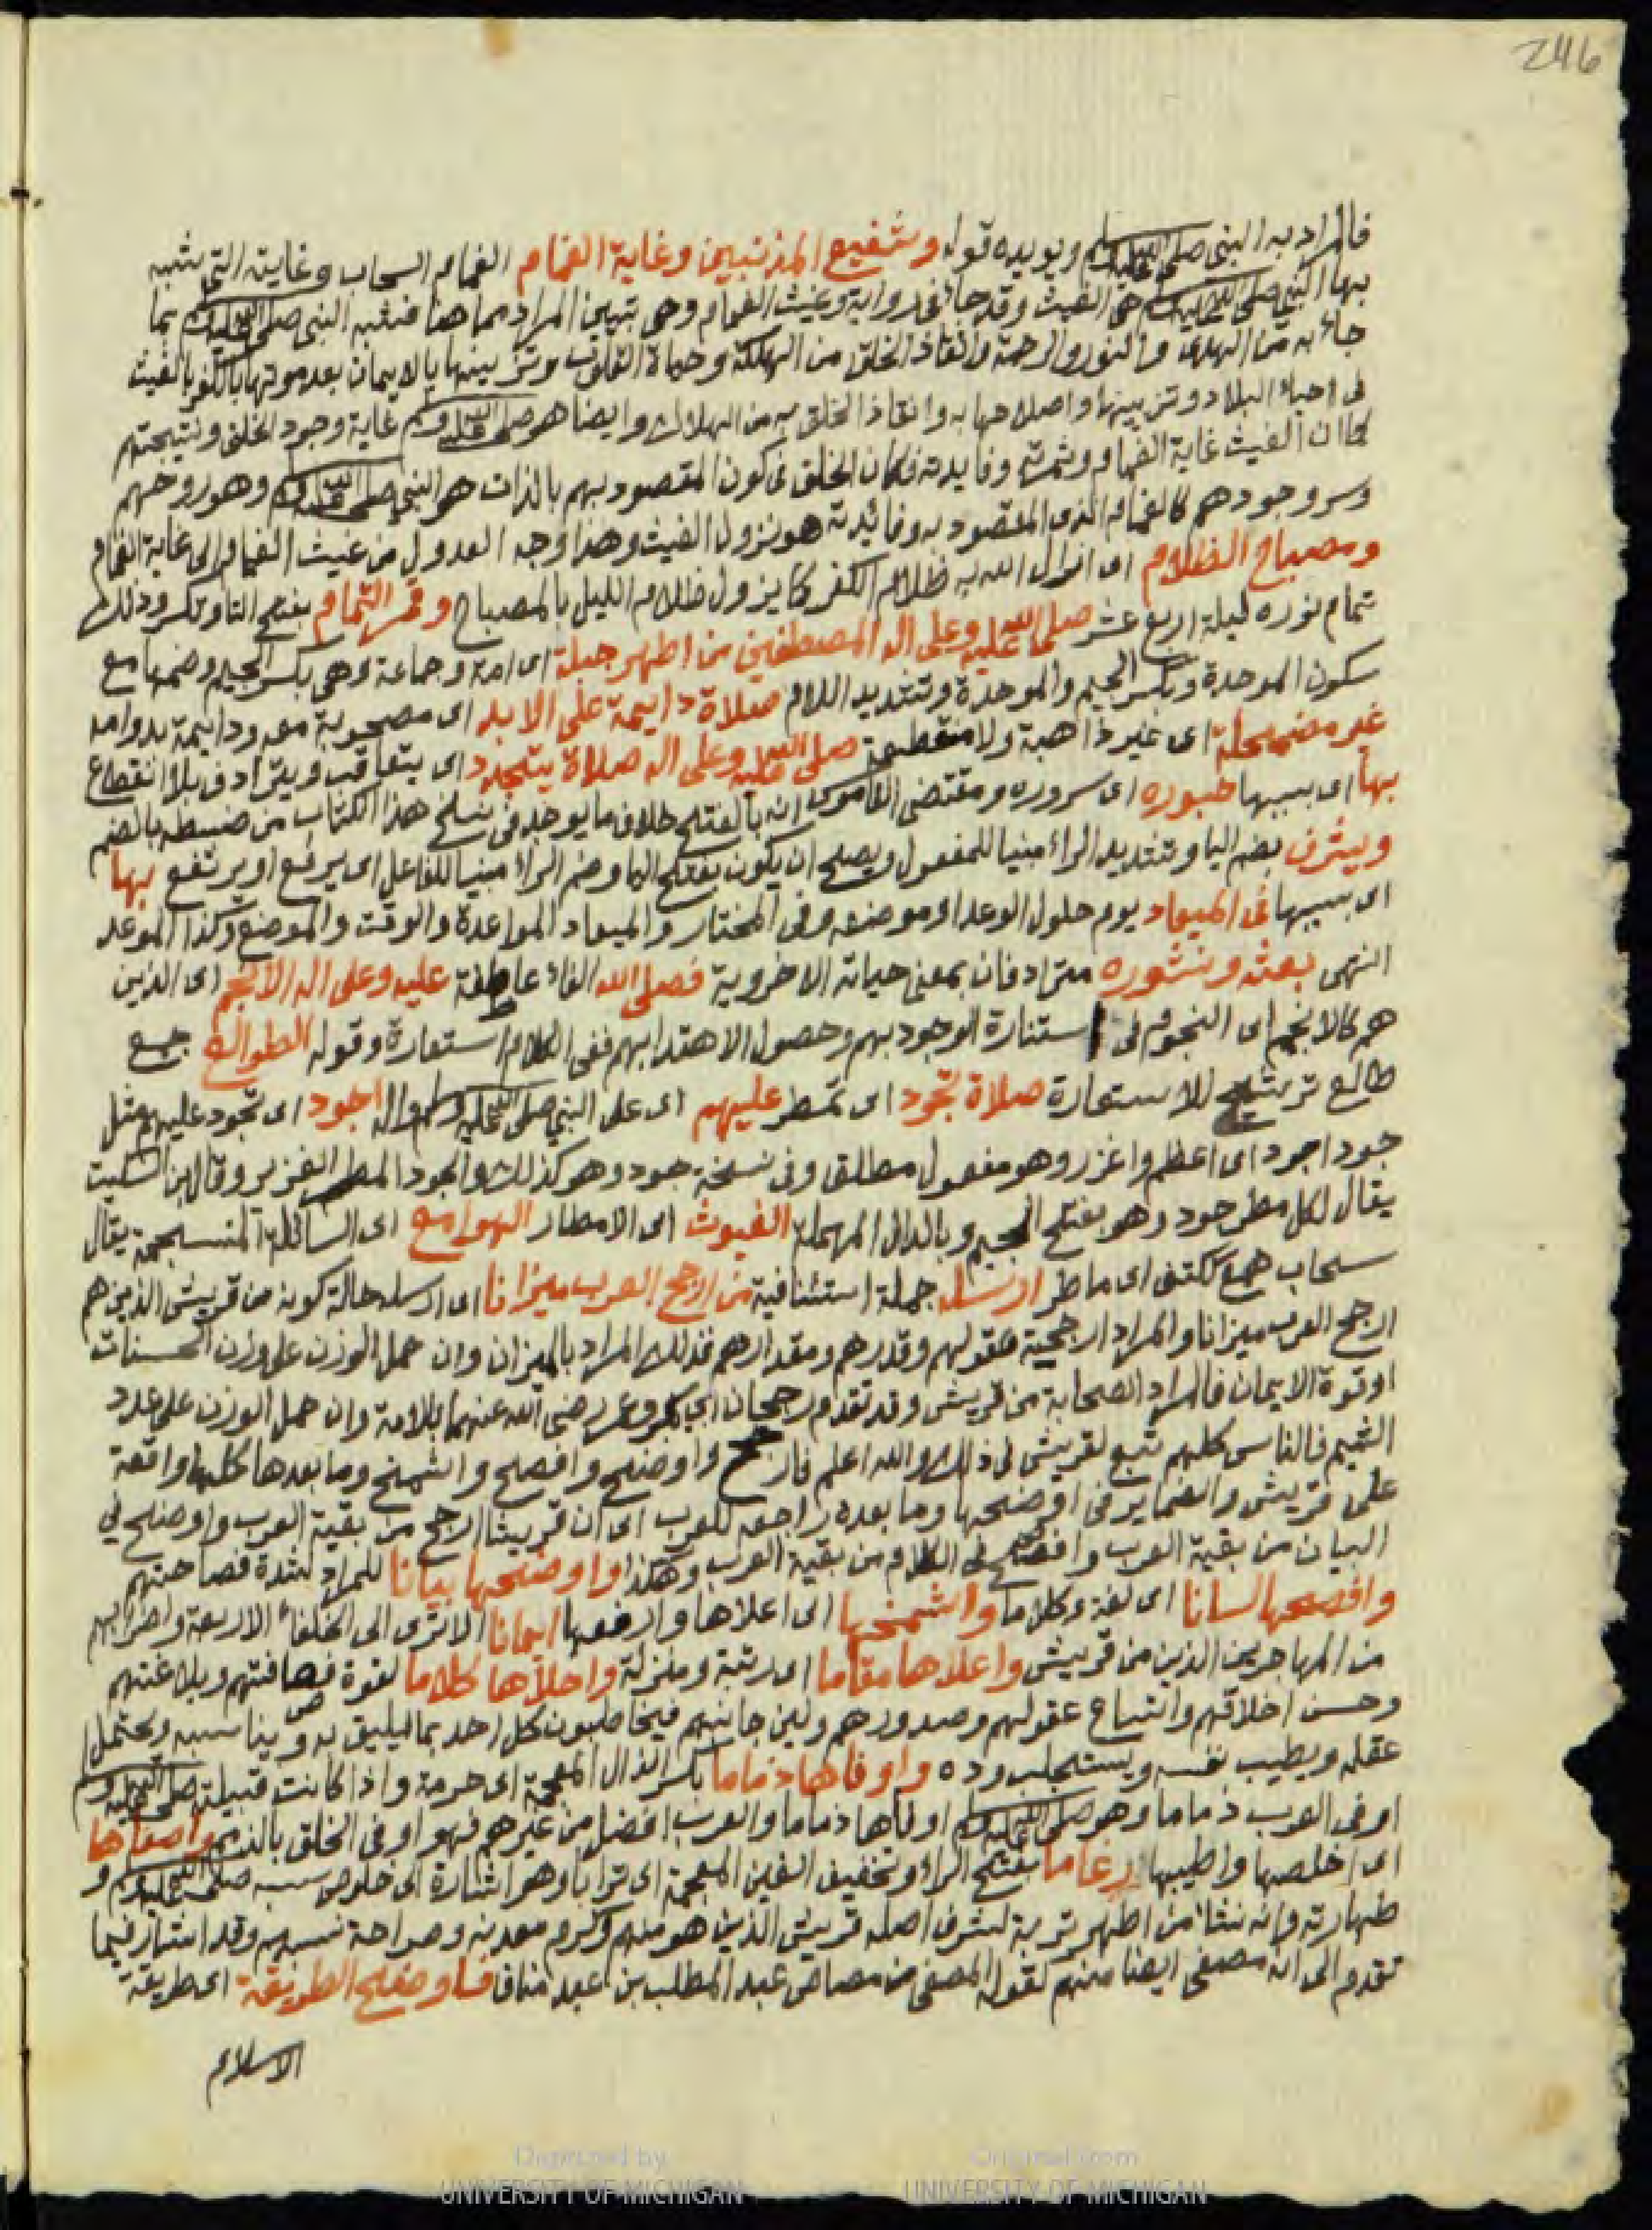 246
فالمراد به النبى صلى الله عليه وسلم ويويده قوله وشفيع المذنبين وغاية الغمام الغمام السحاب وغايته التى شبه
بها النبى صلى الله عليه وسلم هى الغيث وقد جاء فى رواية وغيث الغمام وهى تبين المراد مما هنا فشبه النبى صلى الله عليه وسلم بما
جاء به من الهدى والنور والرحمة وانقاذ الخلق من الهلكة وحياة القلوب وتزيينها بالايمان بعد موتها بالكفر بالغيث
فى احياء البلاد وتزيينها واصلاحها به وانقاذ الخلق به من الهلاك وايضا هو صلى الله عليه وسلم غاية وجود الخلق ونتيجتهم
كما ان الغيث غاية الغمام وثمرته وفايدته فكان الخلق فى كون المقصود بهم بالذات هو النبى صلى الله عليه وسلم وهو روحهم
وسر وجودهم كالغمام الذى المقصود به وفائدته هو نزول الغيث وهذا وجه العدول من غيث الغمام الى غاية الغمام
ومصباح الظلام اى ازال الله به ظلام الكفر كما يزول ظلام الليل بالمصباح وقمر التمام بفتح التا وتكسر وذلك
تمام نوره ليلة اربع عشر صلى الله عليه وعلى اله المصطفين من اطهر جبلة اى امة وجماعة وهى بكسر الجيم وضمها مع
سكون الموحدة وبكسر الجيم والموحدة وتشديد اللام صلاة دايمة على الابد اى مصحوبة معه ودايمة بدوامه
غير مضمحلة اى غير ذاهبة ولا منقطعة صلى الله عليه وعلى اله صلاة يتجدد اى يتعاقب ويترادف بلا انقطاع
بها اى بسببها حبوره اى سروره ومقتضى القاموس انه بالفتح خلاف ما يوجد فى نسخ هذا الكتاب من ضبطه بالضم
ويشرف بضم اليا وتشديد الراء مبنيا للمفعول ويصلح ان يكون بفتح اليا وضم الراء مبنيا للفاعل اى يرفع او يرتفع بها
اى بسببها فى الميعاد يوم حلول الوعد او موضعه وفى المختار والميعاد المواعدة والوقت والموضع وكذا الموعد
انتهى بعثه ونشوره مترادفان بمعنى حياته الاخروية فصلى الله الفاء عاطفة عليه وعلى اله الانجم اى الذين
هم كالانجم اى النجوم فى استنارة الوجود بهم وحصول الاهتداء بهم ففى الكلام استعارة وقوله الطوالع جمع
طالع ترشيح للاستعارة صلاة تجود اى تمطر عليهم اى على النبى صلى الله عليه وسلم واله اجود اى تجود عليهم مثل
جود اجود اى اعظم واغزر وهو مفعول مطلق وفى نسخة جود وهو كذلك والجود المطر الغزير وقال ابن السكيت
يقال لكل مطر جود وهو بفتح الجيم وبالدال المهملة الغيوث اى الامطار الهوامع اى السائلة المنسجمة يقال
سحاب همع ككتف اى ماطر ارسله جملة استئنافية من ارجح العرب ميزانا اى ارسله حالة كونه من قريش الذين هم
ارجح العرب ميزانا والمراد ارجحية عقولهم وقدرهم ومقدارهم فذلك المراد بالميزان وان حمل الوزن على وزن الحسنات
او قوة الايمان فالمراد الصحابة من قريش وقد تقدم رجحان ابى بكر وعمر رضى الله عنهما بالامة وان حمل الوزن على عدد
الشيم فالناس كلهم تبع لقريش فى ذلك والله اعلم فارجح واوضح وافصح واشمخ وما بعدها كلها واقعة
على قريش والضماير فى اوضحها وما بعده راجعه للعرب اى ان قريشا ارجح من بقية العرب واوضح فى
البيان من بقية العرب وافصح فى الكلام من بقية العرب وهكذا واوضحها بيانا للمراد لشدة فصاحتهم
وافصحها لسانا اى لغة وكلاما واشمخها اى اعلاها وارفعها ايمانا الا ترى الى الخلفاء الاربعة واضرابهم
من المهاجرين الذين من قريش واعلاها مقاما اى رتبة ومنزلة واحلاها كلاما لقوة فصاحتهم وبلاغتهم
وحسن اخلاقهم واتساع عقولهم وصدورهم ولين جانبهم فيخاطبون كل احد بما يليق به ويناسبه ويحتمل
عقله ويطيب نفسه ويستجلب وده واوفاها ذماما بكسر الذال المعجمة اى حرمة واذا كانت قبيلته صلى الله عليه وسلم
اوفى العرب ذماما وهو صلى الله عليه وسلم اوفاها ذماما والعرب افضل من غيرهم فهو اوفى الخلق بالذمم واصفاها
اى اخلصها واطيبها رغاما بفتح الراء وتخفيف الغين المعجمة اى ترابا وهو اشارة الى خلوص نسبه صلى الله عليه وسلم و
طهارته وانه نشا من اطهر تربة لشرف اصله قريش الذين هو منهم وكرم معدنه وصراحة نسبهم وقد اشار فيما
تقدم الى انه مصفى ايضا منهم بقوله المصفى من مصاص عبد المطلب بن عبد مناف فاوضح الطريقة اى طريقة
الاسلام
Digitized by
UNIVERSITY OF MICHIGAN
Original from
UNIVERSITY OF MICHIGAN